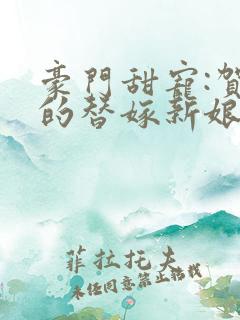 豪門甜寵:賀
的替嫁新娘
菲拉托夫
未經同意禁止轉載